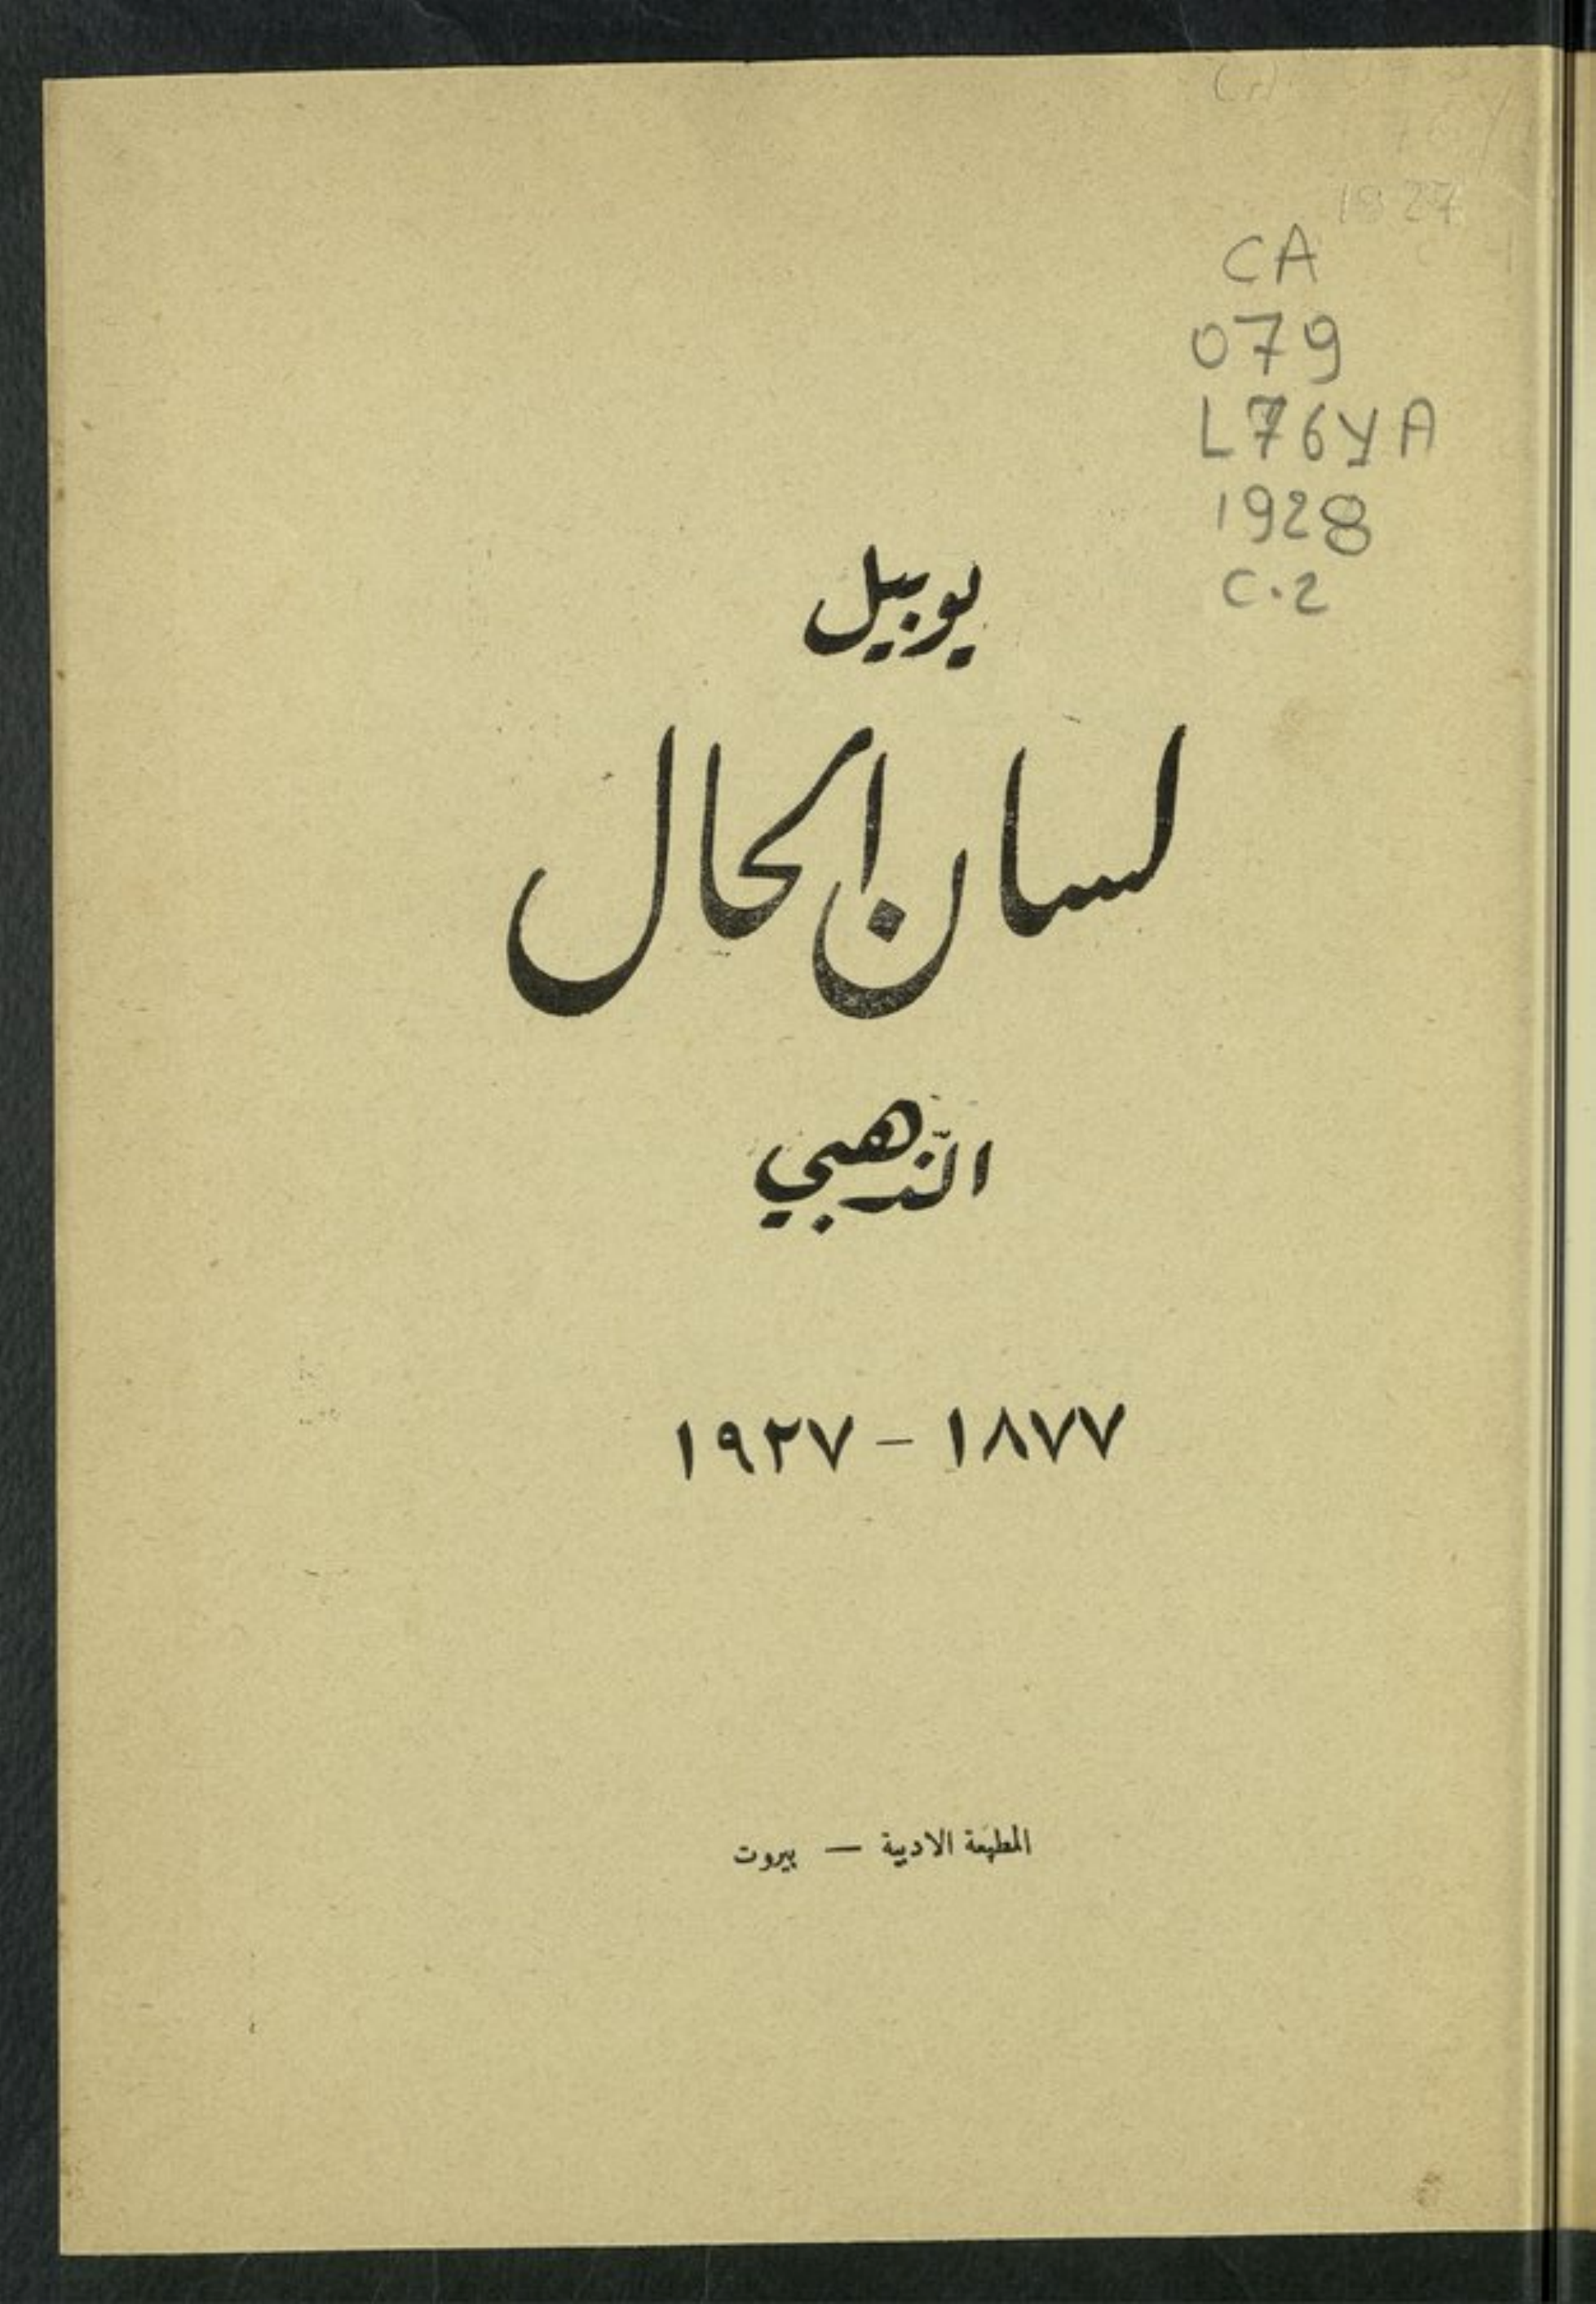 1927
CA
079
L76yA
1928
c.2
يوبيل
لسان الحال
الذّهبي
١٨٧٧ – ١٩٢٧
المطبعة الادبية — بيروت